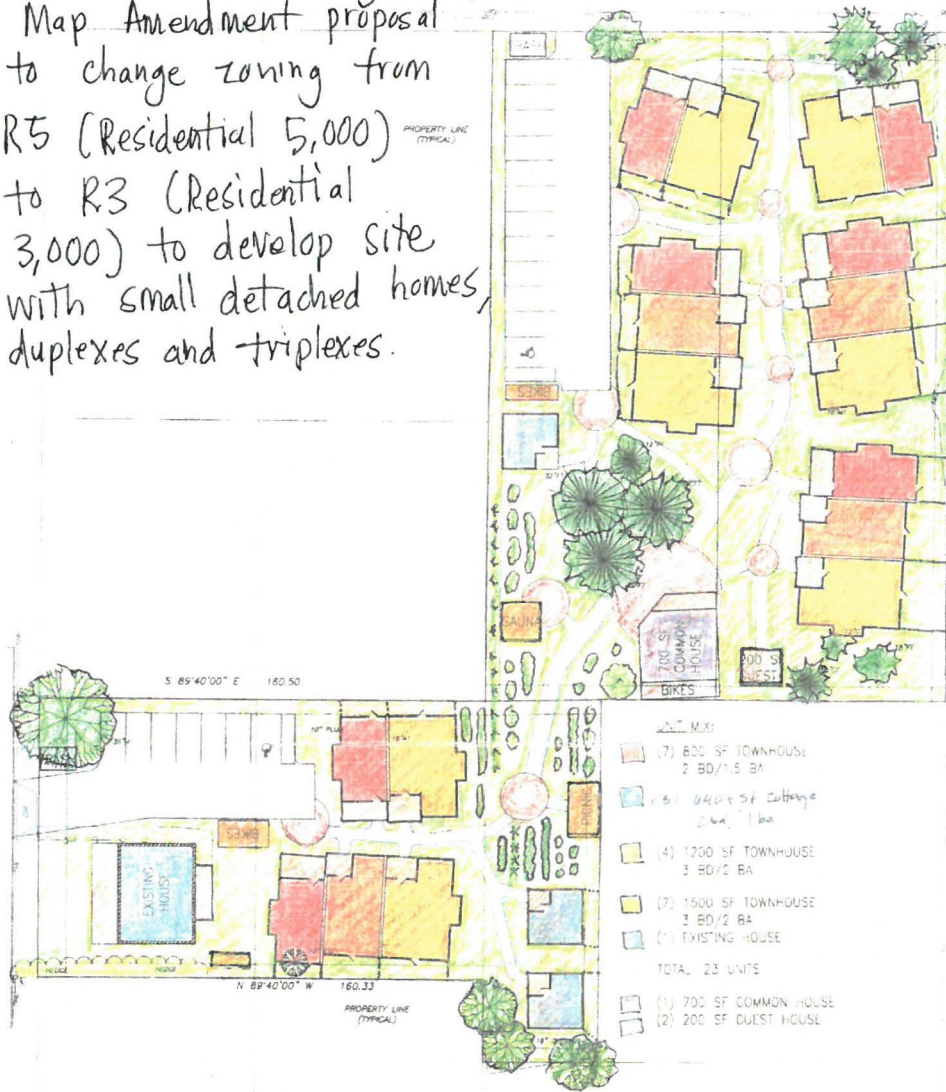 Map Amendment proposal
to change zoning from
R5 (Residential 5,000)
to R3 (Residential
3,000) to develop site
with small detached homes,
duplexes and triplexes.
PROPERTY LINE
(TYPICAL)
TRASH
BIKES
SAUNA
700 SF
COMMON
HOUSE
BIKES
200 SF
GUEST
S 89°40'00" E 160.50
BIKES
PICNIC
EXISTING
HOUSE
HEDGE
HEDGE
N 89°40'00" W 160.33
PROPERTY LINE
(TYPICAL)
UNIT MIX:
(7) 800 SF TOWNHOUSE
2 BD/1.5 BA
(3) 640± SF Cottage
2 bd, 1 ba
(4) 1200 SF TOWNHOUSE
3 BD/2 BA
(7) 1500 SF TOWNHOUSE
3 BD/2 BA
(1) EXISTING HOUSE
TOTAL 23 UNITS
(1) 700 SF COMMON HOUSE
(2) 200 SF GUEST HOUSE